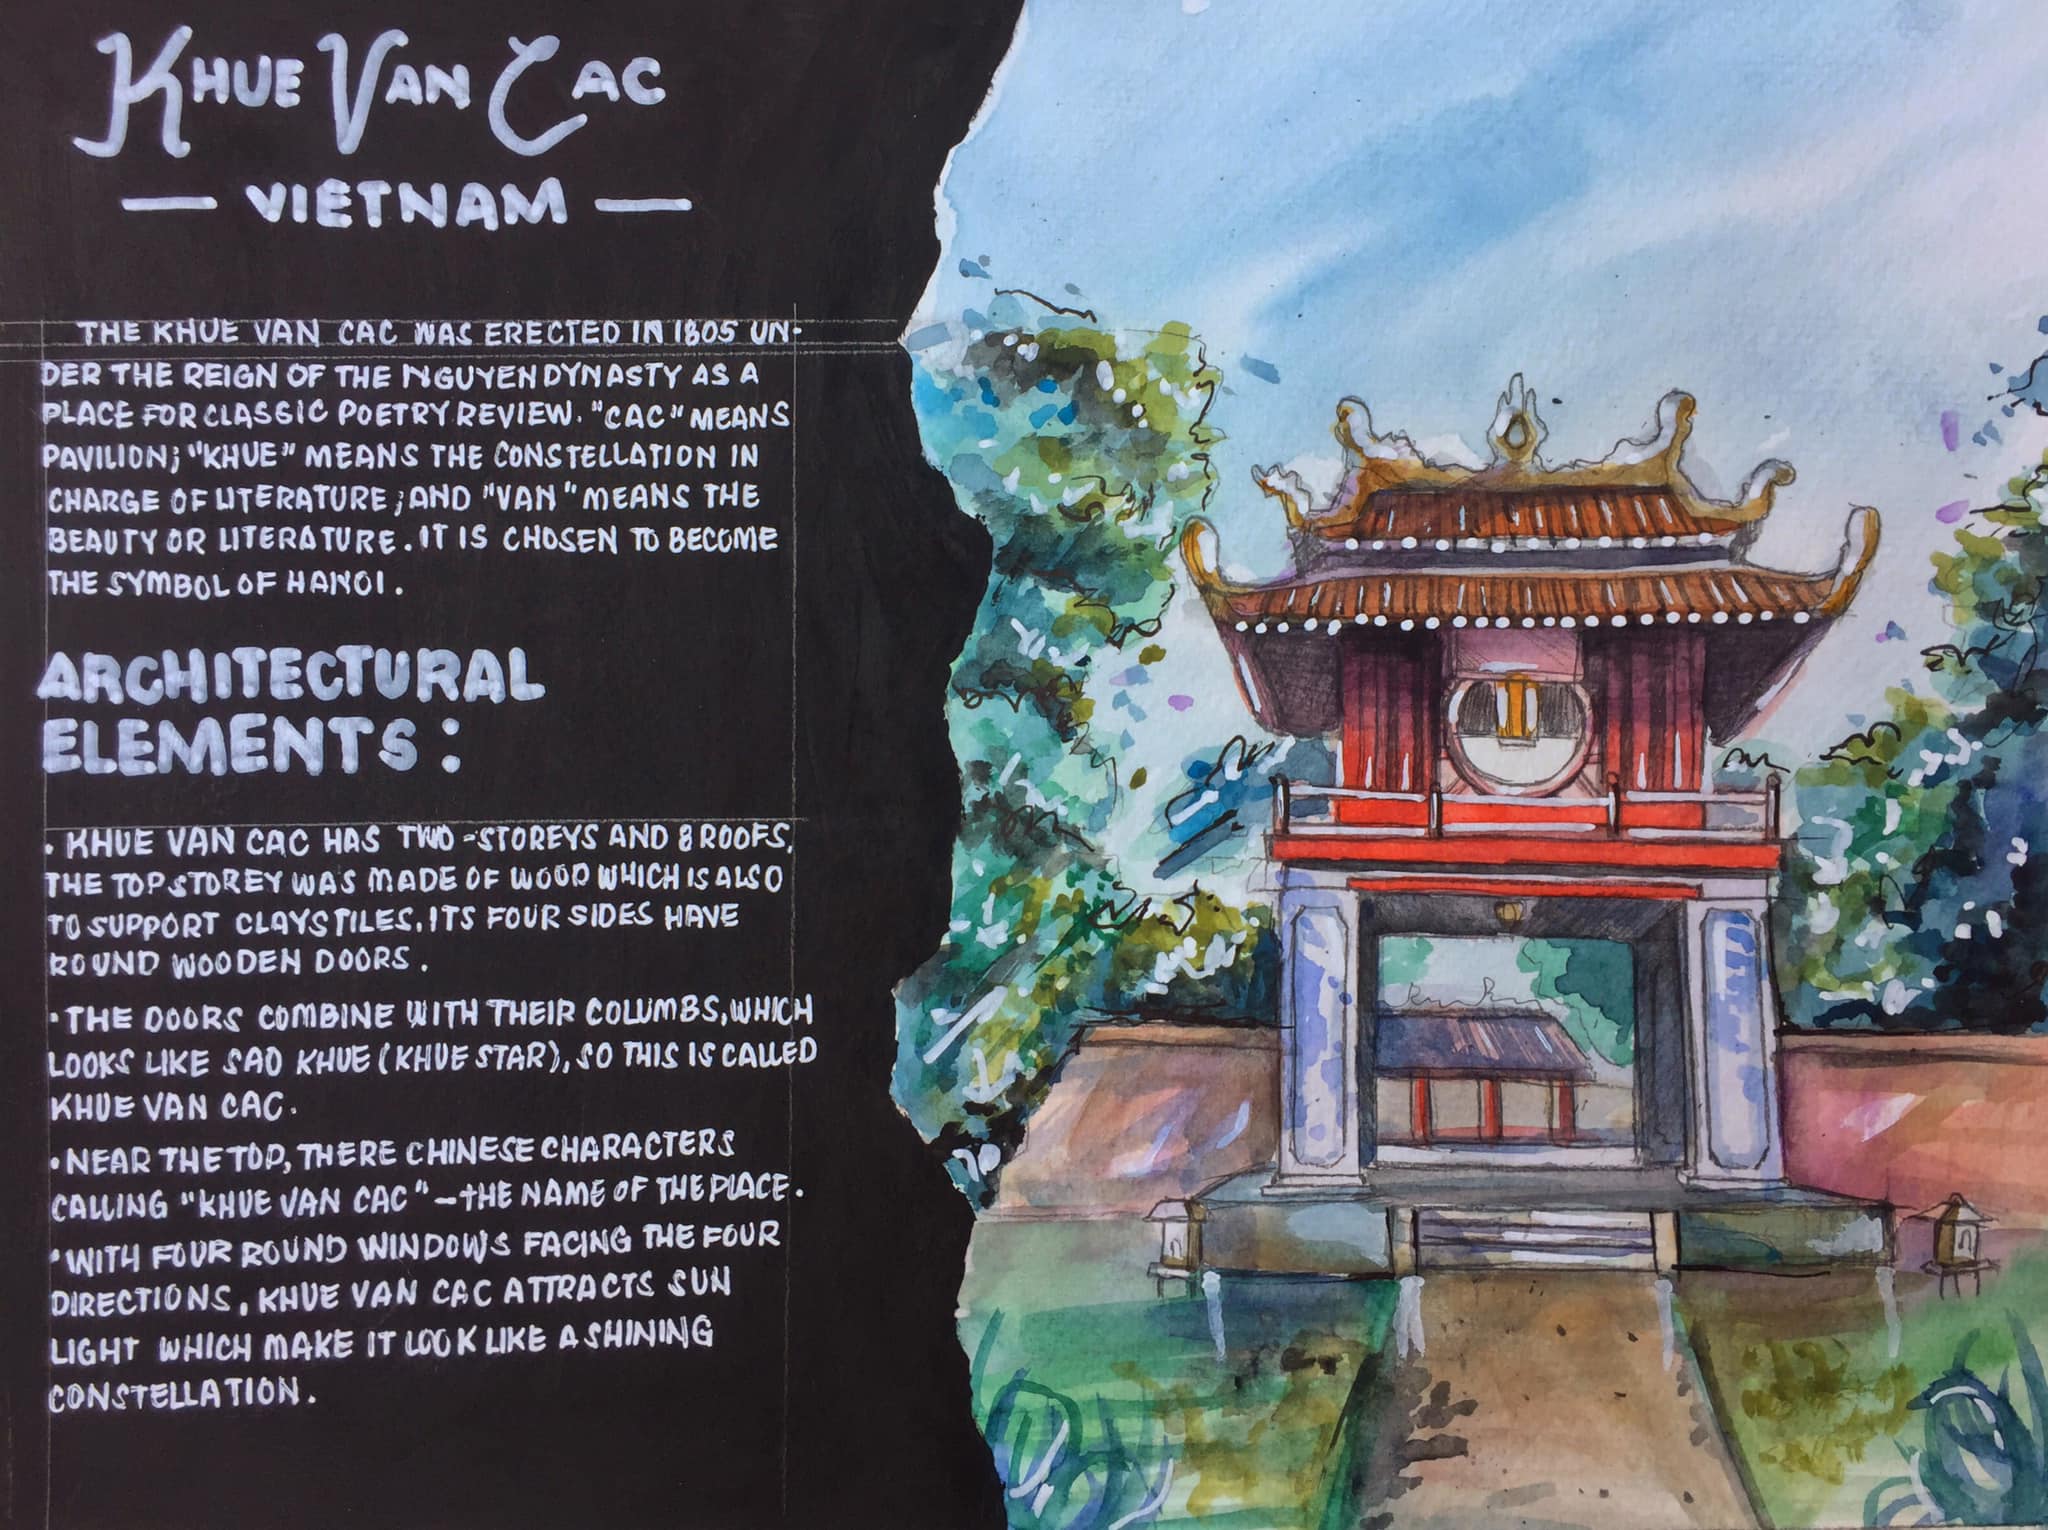 KHUE VAN CAC
— VIETNAM —
THE KHUE VAN CAC WAS ERECTED IN 1805 UN-
DER THE REIGN OF THE NGUYEN DYNASTY AS A
PLACE FOR CLASSIC POETRY REVIEW. "CAC" MEANS
PAVILION; "KHUE" MEANS THE CONSTELLATION IN
CHARGE OF LITERATURE; AND "VAN" MEANS THE
BEAUTY OR LITERATURE. IT IS CHOSEN TO BECOME
THE SYMBOL OF HANOI.
ARCHITECTURAL
ELEMENTS:
• KHUE VAN CAC HAS TWO-STOREYS AND 8 ROOFS,
THE TOP STOREY WAS MADE OF WOOD WHICH IS ALSO
TO SUPPORT CLAYSTILES. ITS FOUR SIDES HAVE
ROUND WOODEN DOORS.
• THE DOORS COMBINE WITH THEIR COLUMBS, WHICH
LOOKS LIKE SAO KHUE (KHUE STAR), SO THIS IS CALLED
KHUE VAN CAC.
• NEAR THE TOP, THERE CHINESE CHARACTERS
CALLING "KHUE VAN CAC" - THE NAME OF THE PLACE.
• WITH FOUR ROUND WINDOWS FACING THE FOUR
DIRECTIONS, KHUE VAN CAC ATTRACTS SUN
LIGHT WHICH MAKE IT LOOK LIKE A SHINING
CONSTELLATION.